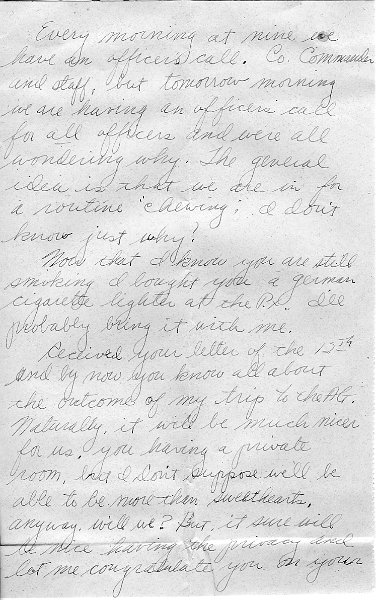 Every morning at nine we
have an officers' call. Co. Commander
and staff, but tomorrow morning
we are having an officers call
for all officers and were all
wondering why. The general
idea is that we are in for
a routine "chewing", I don't
know just why?
Now that I know you are still
smoking I bought you a german
cigarette lighter at the Px. Ill
probably bring it with me.
Recieved your letter of the 12th
and by now you know all about
the outcome of my trip to the AG.
Naturally, it will be much nicer
for us, you having a private
room, but I don't suppose we'll be
able to be more than sweethearts,
anyway, will we? But, it sure will
be nice having the privacy and
let me congratulate you on your